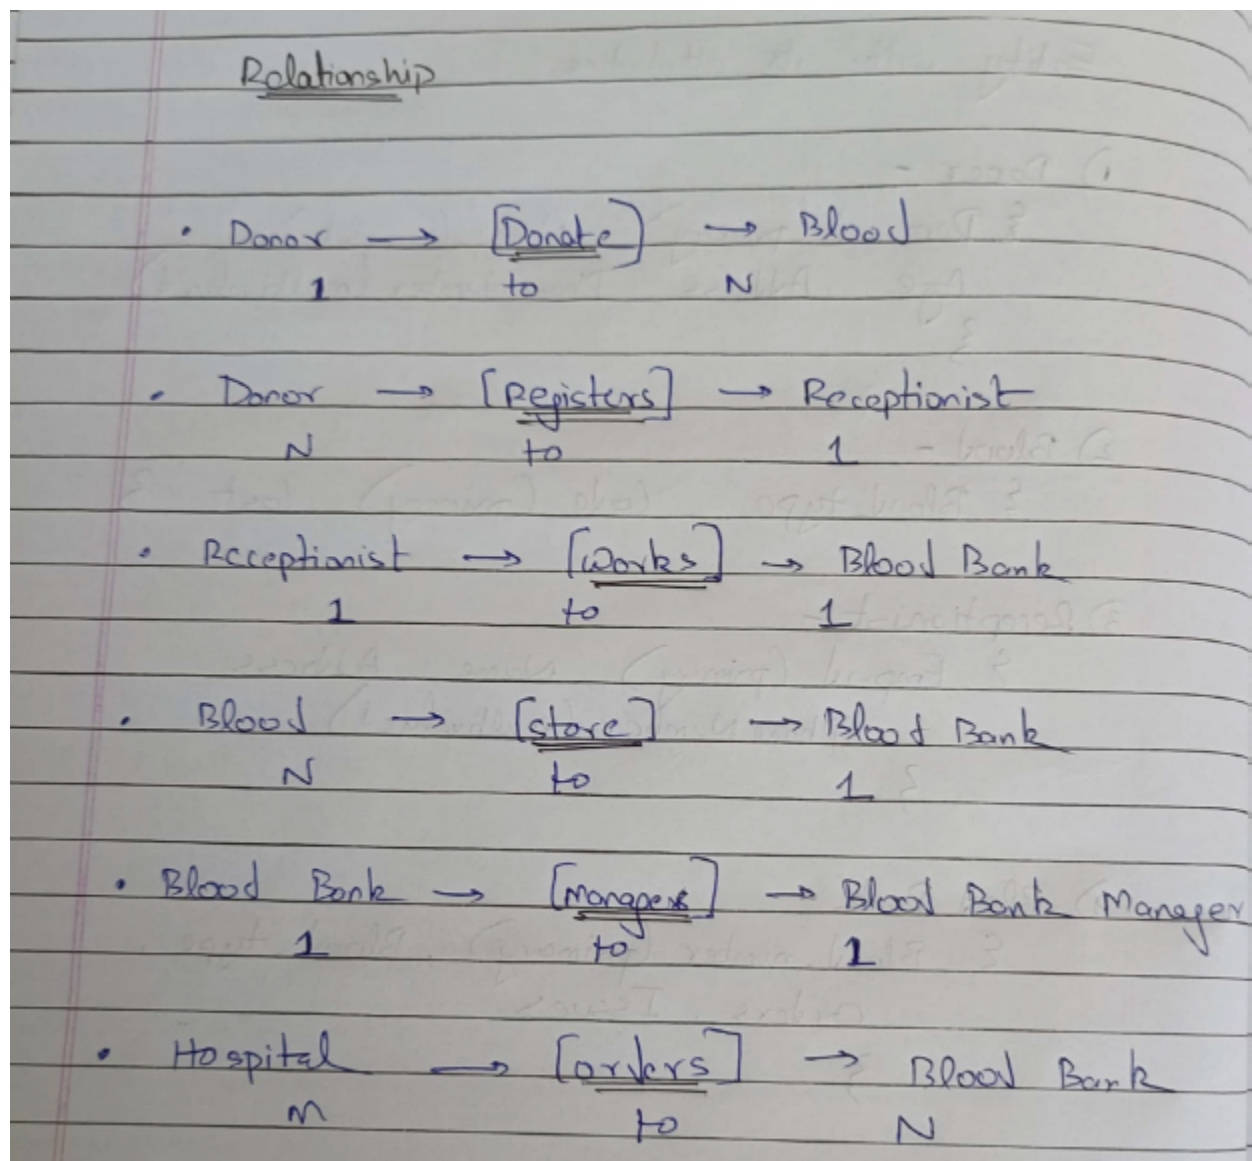 Relationship
• Donor → [Donate] → Blood
1 to N
• Donor → [Registers] → Receptionist
N to 1
• Receptionist → [works] → Blood Bank
1 to 1
• Blood → [store] → Blood Bank
N to 1
• Blood Bank → [manages] → Blood Bank Manager
1 to 1
• Hospital → [orders] → Blood Bank
M to N